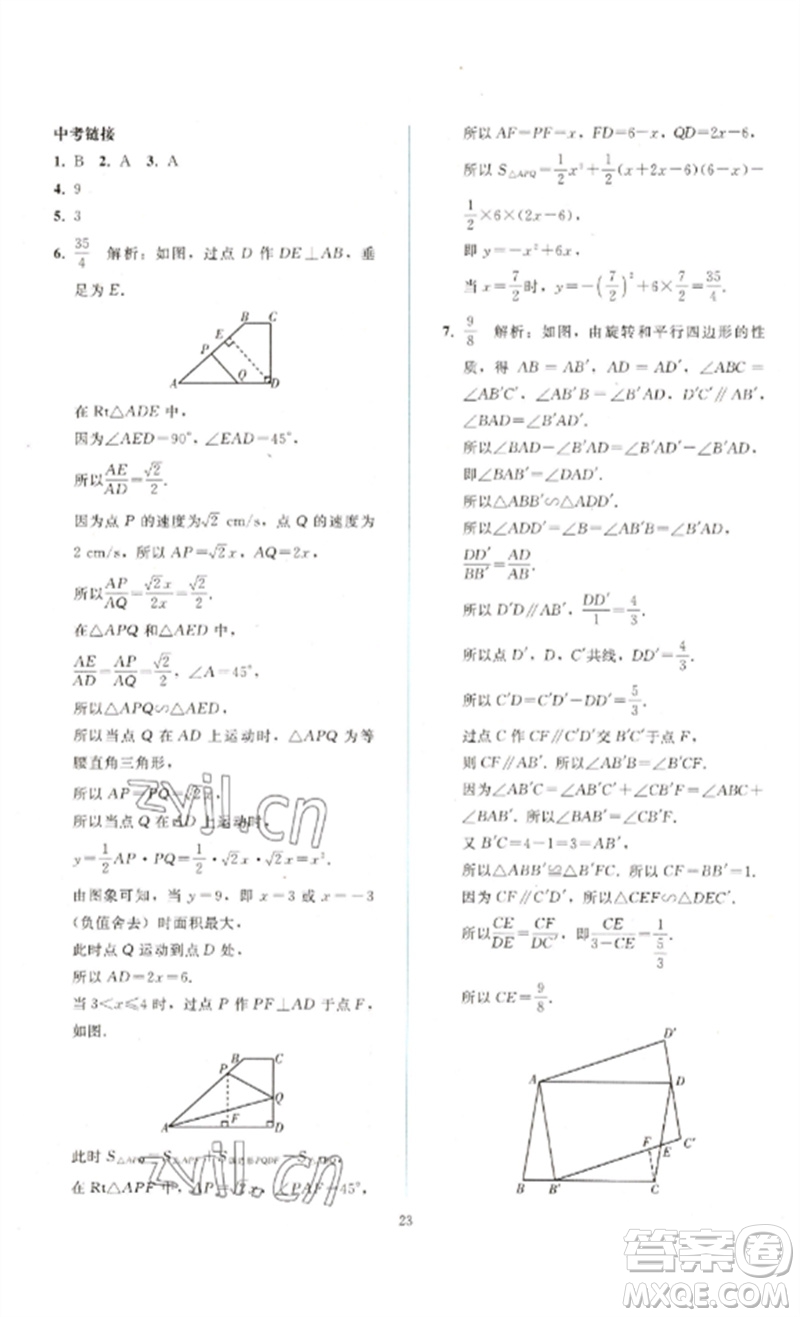 中考链接
1. B 2. A 3. A
4. 9
5. 3
6. 35/4 解析：如图，过点 D 作 DE⊥AB，垂
足为 E.
B C
E
P
A Q D
在 Rt△ADE 中，
因为∠AED=90°，∠EAD=45°，
所以AE/AD=√2/2.
因为点 P 的速度为√2 cm/s，点 Q 的速度为
2 cm/s，所以 AP=√2x，AQ=2x，
所以AP/AQ=√2x/2x=√2/2.
在△APQ 和△AED 中，
AE/AD=AP/AQ=√2/2，∠A=45°，
所以△APQ∽△AED，
所以当点 Q 在 AD 上运动时，△APQ 为等
腰直角三角形，
所以 AP=PQ=√2x，
所以当点 Q 在 AD 上运动时，
y=1/2AP·PQ=1/2·√2x·√2x=x².
由图象可知，当 y=9，即 x=3 或 x=-3
(负值舍去)时面积最大，
此时点 Q 运动到点 D 处，
所以 AD=2x=6.
当 3<x≤4 时，过点 P 作 PF⊥AD 于点 F，
如图.
B C
P
Q
A F D
此时 S△APQ=S△APF+S四边形PQDF-S
在 Rt△APF 中，AP=√2x，∠PAF=45°，
所以 AF=PF=x，FD=6-x，QD=2x-6，
所以 S△APQ=1/2x²+1/2(x+2x-6)(6-x)-
1/2×6×(2x-6)，
即 y=-x²+6x，
当 x=7/2时，y=-(7/2)²+6×7/2=35/4.
7. 9/8 解析：如图，由旋转和平行四边形的性
质，得 AB=AB′，AD=AD′，∠ABC=
∠AB′C′，∠BAD=∠B′AD′，
∠BAD=∠B′AD′.
所以∠BAD-∠B′AD=∠B′AD′-∠B′AD，
即∠BAB′=∠DAD′.
所以△ABB′∽△ADD′.
所以∠ADD′=∠B=∠AB′B=∠AB′C′，
DD′/BB′=AD/AB.
所以 D′D∥AB′，所以DD′/1=4/3.
所以点 D′，D，C′共线，DD′=4/3.
所以 C′D=C′D′-DD′=5/3.
过点 C 作 CF∥C′D′交 B′C′于点 F，
则 CF∥AB′. 所以∠AB′F=∠B′FC.
因为∠AB′C=∠AB′C′+∠CB′F=∠B+
∠BAB′，所以∠CB′F=∠BAB′.
又 B′C=4-1=3=AB，
所以△ABB′≌△B′FC. 所以 CF=BB′=1.
因为 CF∥DC′，所以△CEF∽△DEC′.
所以CE/DE=CF/DC′，即CE/(3-CE)=1/(5/3).
所以 CE=9/8.
D′
A D
F E C′
B B′ C
23
zyjl.cn
zyjl.cn
答案圈
MXQE.COM